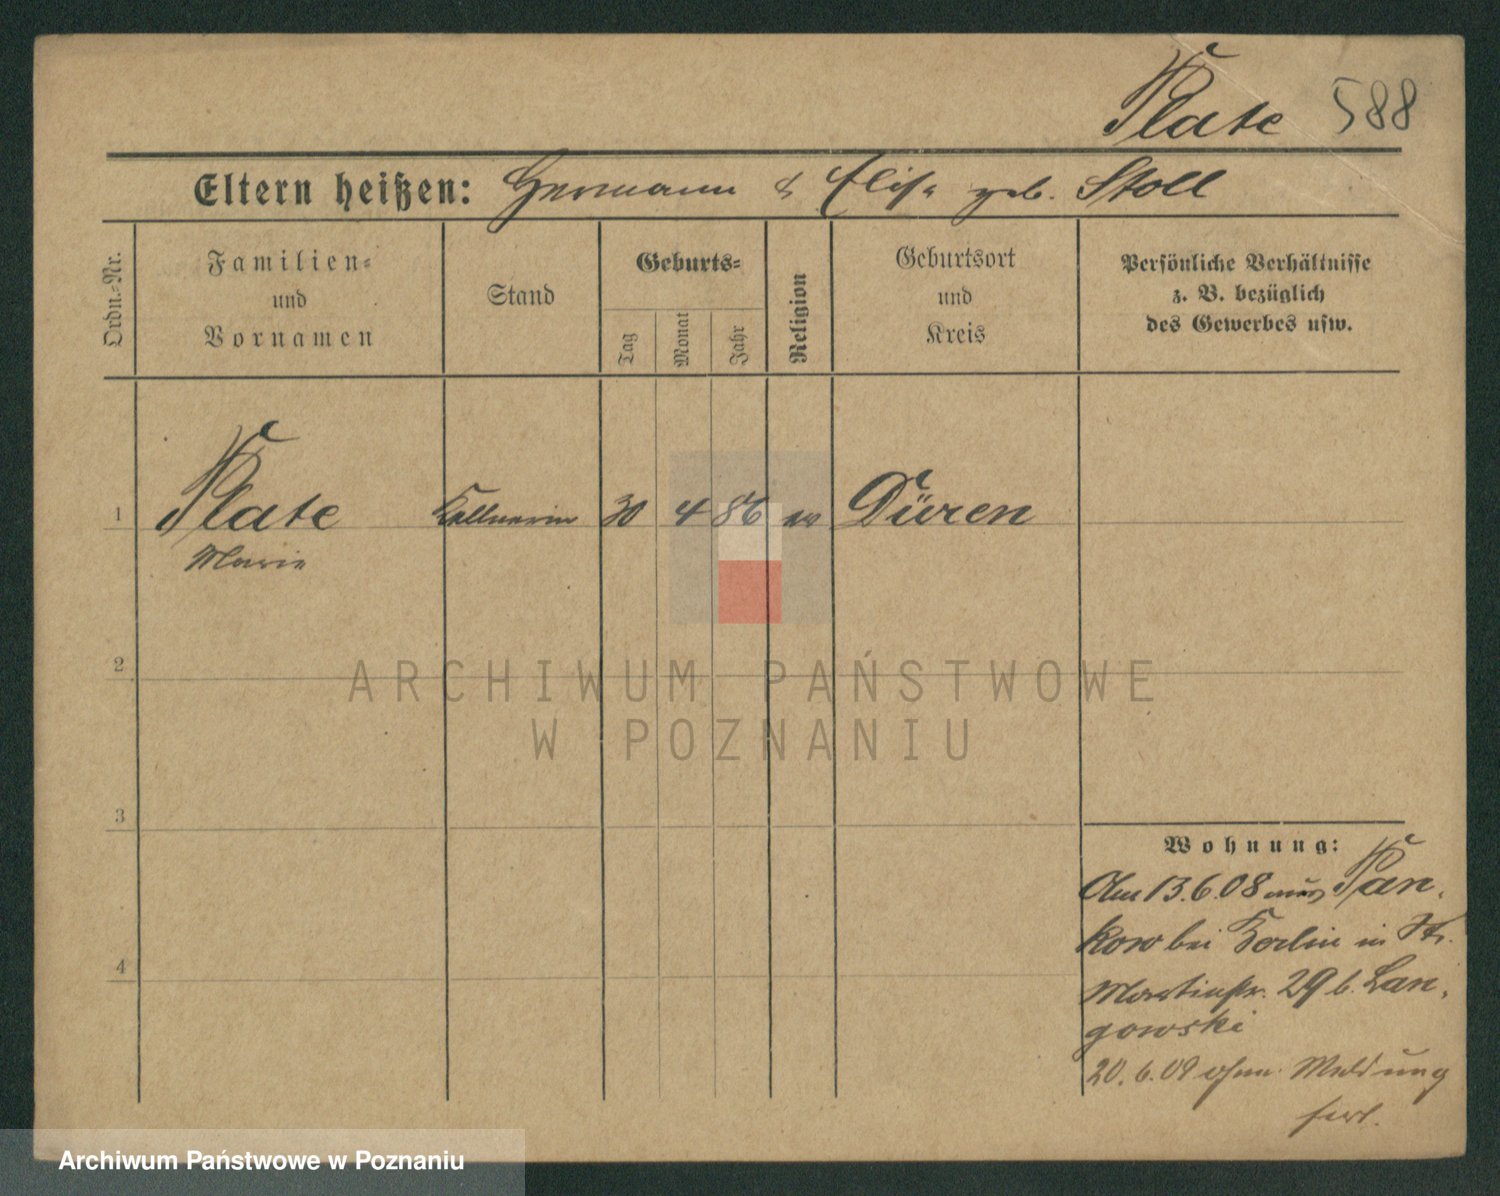 Plate 588
Eltern heißen: Hermann & Elise geb. Stoll
Ordn.-Nr.
Familien-
und
Vornamen
Stand
Geburts-
Tag
Monat
Jahr
Religion
Geburtsort
und
Kreis
Persönliche Verhältnisse
z. B. bezüglich
des Gewerbes usw.
1 Plate Kellnerin 30 4 86 ev Düren
Marie
2
ARCHIWUM PAŃSTWOWE
W POZNANIU
3
Wohnung:
Am 13.6.08 aus Pan-
kow bei Berlin in St.
4
Martinstr. 29 b. Lan-
gowski
20.6.09 ohne Meldung
fort.
Archiwum Państwowe w Poznaniu